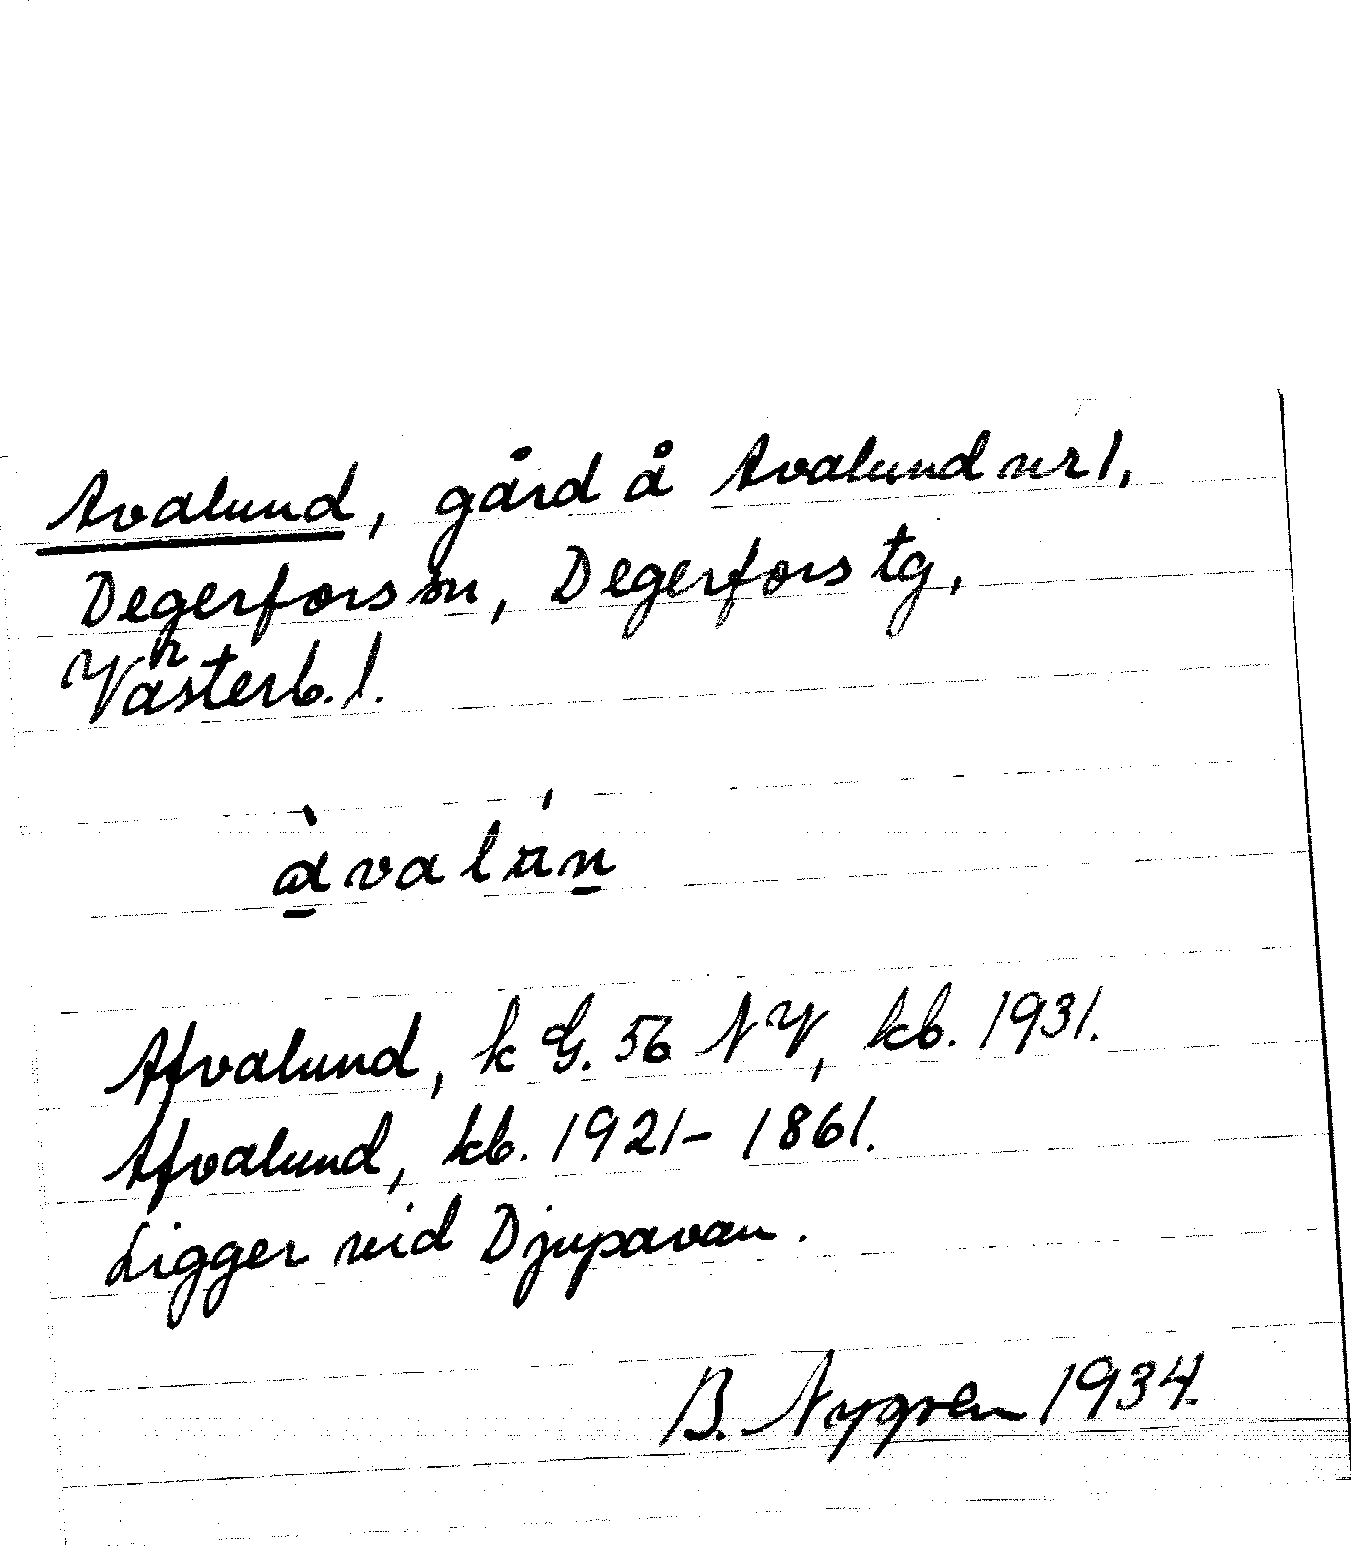 Avalund, gård å Avalund nr 1,
Degerfors sn, Degerfors tg,
Västerb. l.
àvalún
Afvalund, k G. 56 NV, kb. 1931.
Afvalund, kb. 1921– 1861.
Ligger vid Djupavan.
B. Nygren 1934.